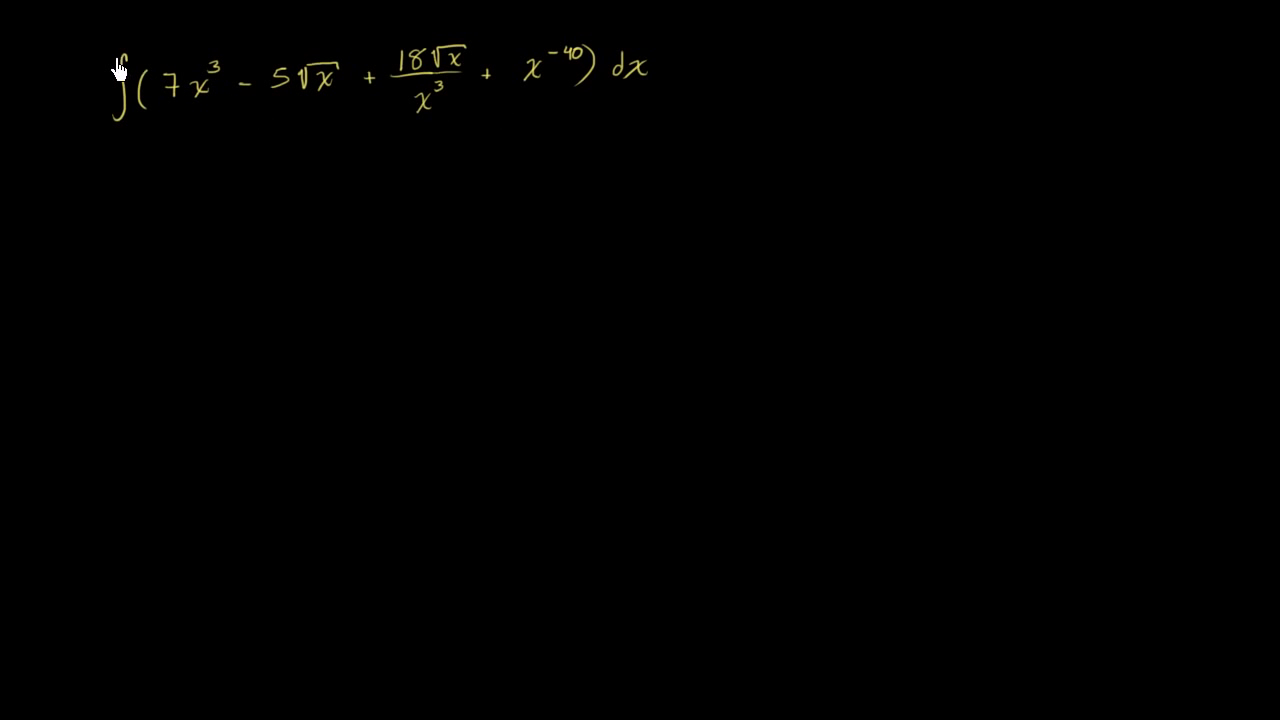 ∫(7x³ - 5√x + 18√x/x³ + x⁻⁴⁰) dx